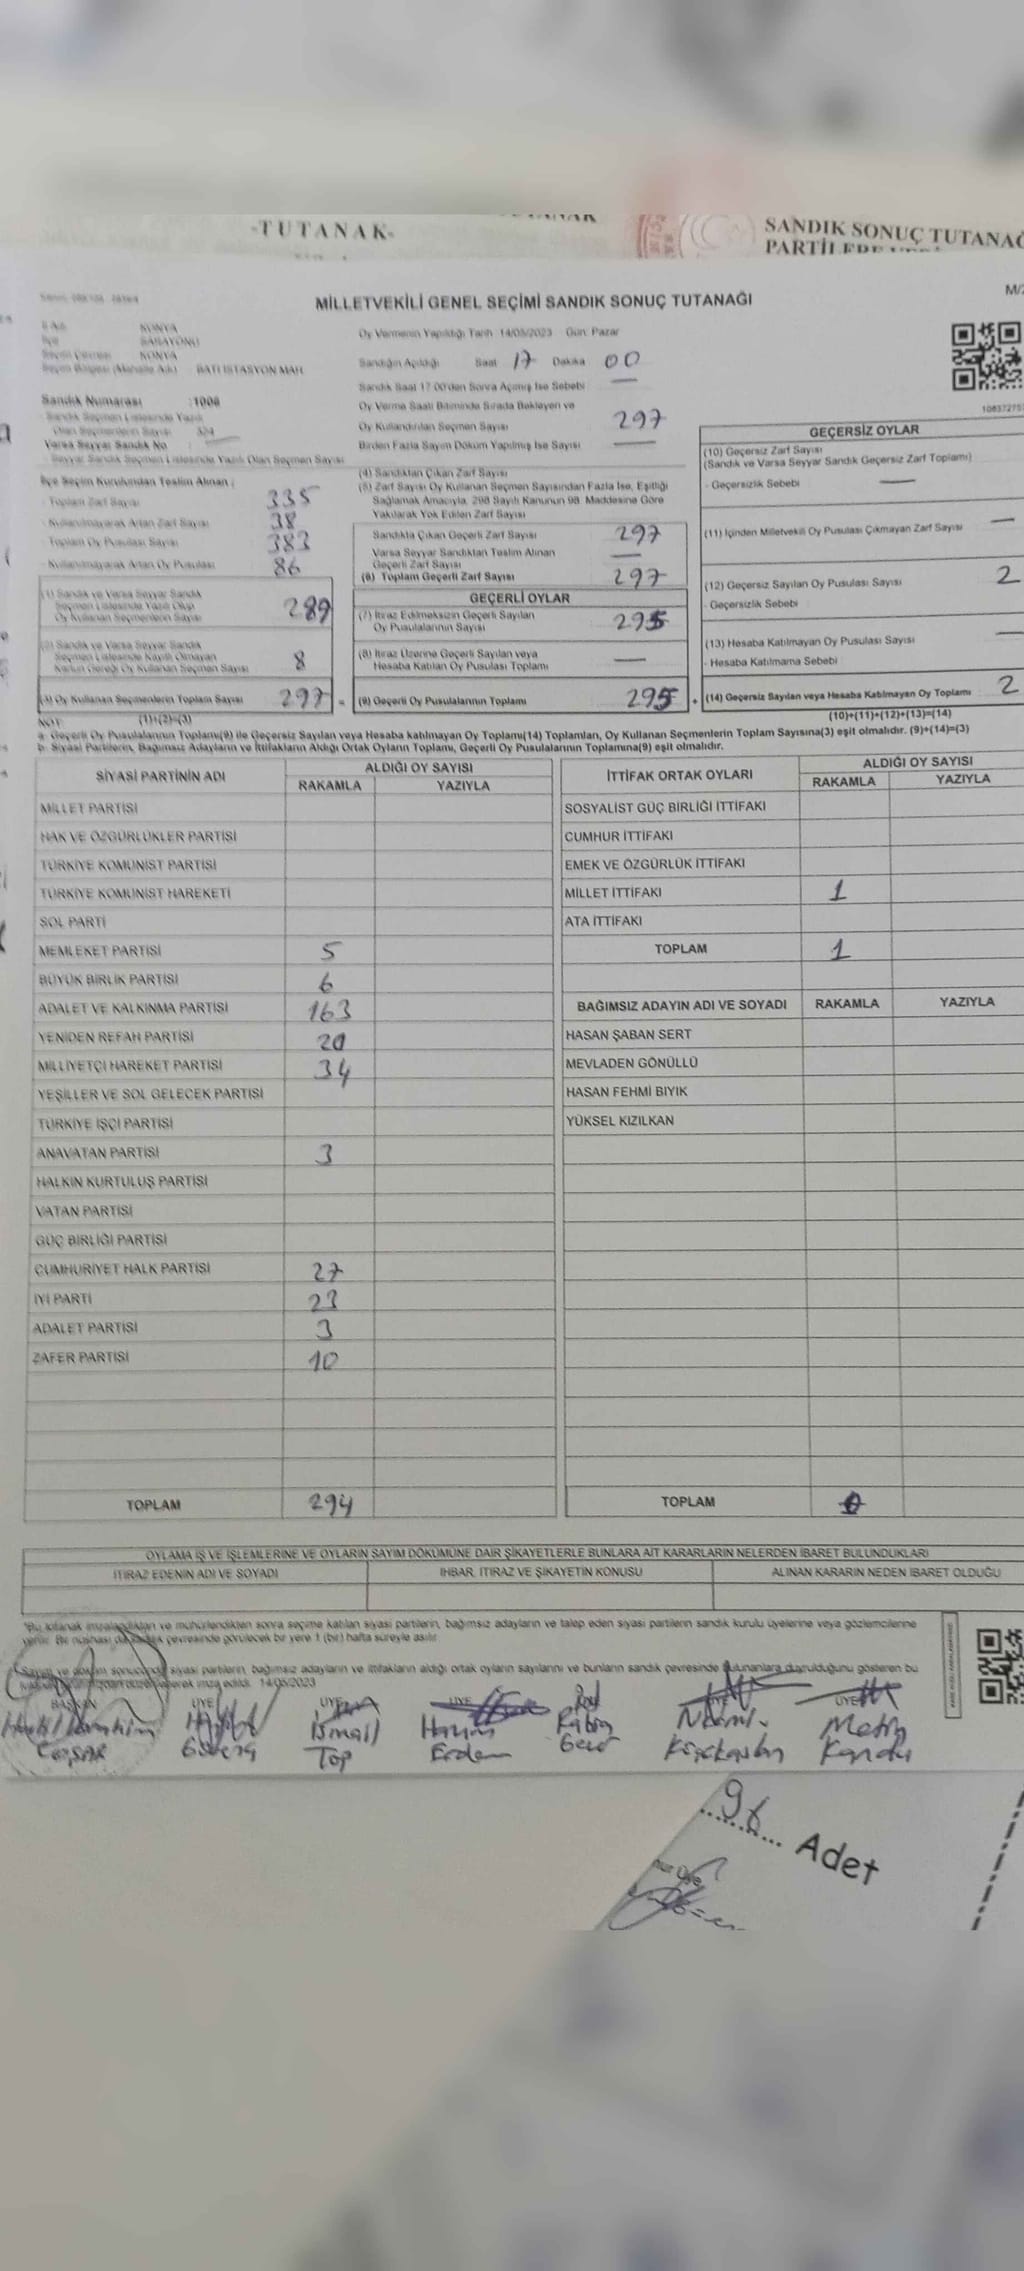 -TUTANAK-
SANDIK SONUÇ TUTANAĞ
MİLLETVEKİLİ GENEL SEÇİMİ SANDIK SONUÇ TUTANAĞI
M/2
İl Adı KONYA
İlçe SARAYÖNÜ
Seçim Çevresi KONYA
Seçim Bölgesi (Mahalle Adı) BATI İSTASYON MAH.
Sandık Numarası :1006
- Sandık Seçmen Listesinde Yazılı
Olan Seçmenlerin Sayısı 324
Varsa Seyyar Sandık No
- Seyyar Sandık Seçmen Listesinde Yazılı Olan Seçmen Sayısı
İlçe Seçim Kurulundan Teslim Alınan ;
- Toplam Zarf Sayısı 335
- Kullanılmayarak Artan Zarf Sayısı 38
- Toplam Oy Pusulası Sayısı 383
- Kullanılmayarak Artan Oy Pusulası 86
(1) Sandık ve Varsa Seyyar Sandık
Seçmen Listesinde Yazılı Olup
Oy Kullanan Seçmenlerin Sayısı 289
(2) Sandık ve Varsa Seyyar Sandık
Seçmen Listesinde Kayıtlı Olmayan
Kanun Gereği Oy Kullanan Seçmen Sayısı 8
(3) Oy Kullanan Seçmenlerin Toplam Sayısı 297 =
Oy Vermenin Yapıldığı Tarih 14/05/2023 Gün: Pazar
Sandığın Açıldığı Saat 17 Dakika 00
Sandık Saat 17:00'den Sonra Açılmış İse Sebebi —
Oy Verme Saati Bitiminde Sırada Bekleyen ve
Oy Kullandırılan Seçmen Sayısı 297
Birden Fazla Sayım Döküm Yapılmış İse Sayısı —
(4) Sandıktan Çıkan Zarf Sayısı
(5) Zarf Sayısı Oy Kullanan Seçmen Sayısından Fazla İse, Eşitliği
Sağlamak Amacıyla, 298 Sayılı Kanunun 98. Maddesine Göre
Yakılarak Yok Edilen Zarf Sayısı
Sandıkta Çıkan Geçerli Zarf Sayısı 297
Varsa Seyyar Sandıktan Teslim Alınan
Geçerli Zarf Sayısı —
(6) Toplam Geçerli Zarf Sayısı 297
GEÇERLİ OYLAR
(7) İtiraz Edilmeksizin Geçerli Sayılan
Oy Pusulalarının Sayısı 295
(8) İtiraz Üzerine Geçerli Sayılan veya
Hesaba Katılan Oy Pusulası Toplamı —
(9) Geçerli Oy Pusulalarının Toplamı 295 +
GEÇERSİZ OYLAR
(10) Geçersiz Zarf Sayısı
(Sandık ve Varsa Seyyar Sandık Geçersiz Zarf Toplamı)
- Geçersizlik Sebebi —
(11) İçinden Milletvekili Oy Pusulası Çıkmayan Zarf Sayısı —
(12) Geçersiz Sayılan Oy Pusulası Sayısı 2
- Geçersizlik Sebebi
(13) Hesaba Katılmayan Oy Pusulası Sayısı —
- Hesaba Katılmama Sebebi
(14) Geçersiz Sayılan veya Hesaba Katılmayan Oy Toplamı 2
NOT: (1)+(2)=(3)
(10)+(11)+(12)+(13)=(14)
a- Geçerli Oy Pusulalarının Toplamı(9) ile Geçersiz Sayılan veya Hesaba katılmayan Oy Toplamı(14) Toplamları, Oy Kullanan Seçmenlerin Toplam Sayısına(3) eşit olmalıdır. (9)+(14)=(3)
b- Siyasi Partilerin, Bağımsız Adayların ve İttifakların Aldığı Ortak Oyların Toplamı, Geçerli Oy Pusulalarının Toplamına(9) eşit olmalıdır.
SİYASİ PARTİNİN ADI ALDIĞI OY SAYISI
RAKAMLA YAZIYLA
MİLLET PARTİSİ
HAK VE ÖZGÜRLÜKLER PARTİSİ
TÜRKİYE KOMÜNİST PARTİSİ
TÜRKİYE KOMÜNİST HAREKETİ
SOL PARTİ
MEMLEKET PARTİSİ 5
BÜYÜK BİRLİK PARTİSİ 6
ADALET VE KALKINMA PARTİSİ 163
YENİDEN REFAH PARTİSİ 20
MİLLİYETÇİ HAREKET PARTİSİ 34
YEŞİLLER VE SOL GELECEK PARTİSİ
TÜRKİYE İŞÇİ PARTİSİ
ANAVATAN PARTİSİ 3
HALKIN KURTULUŞ PARTİSİ
VATAN PARTİSİ
GÜÇ BİRLİĞİ PARTİSİ
CUMHURİYET HALK PARTİSİ 27
İYİ PARTİ 23
ADALET PARTİSİ 3
ZAFER PARTİSİ 10
TOPLAM 294
İTTİFAK ORTAK OYLARI ALDIĞI OY SAYISI
RAKAMLA YAZIYLA
SOSYALİST GÜÇ BİRLİĞİ İTTİFAKI
CUMHUR İTTİFAKI
EMEK VE ÖZGÜRLÜK İTTİFAKI
MİLLET İTTİFAKI 1
ATA İTTİFAKI
TOPLAM 1
BAĞIMSIZ ADAYIN ADI VE SOYADI RAKAMLA YAZIYLA
HASAN ŞABAN SERT
MEVLADEN GÖNÜLLÜ
HASAN FEHMİ BIYIK
YÜKSEL KIZILKAN
TOPLAM 0
OYLAMA İŞ VE İŞLEMLERİNE VE OYLARIN SAYIM DÖKÜMÜNE DAİR ŞİKAYETLERLE BUNLARA AİT KARARLARIN NELERDEN İBARET BULUNDUKLARI
İTİRAZ EDENİN ADI VE SOYADI İHBAR, İTİRAZ VE ŞİKAYETİN KONUSU ALINAN KARARIN NEDEN İBARET OLDUĞU
*Bu tutanak imzalandıktan ve mühürlendikten sonra seçime katılan siyasi partilerin, bağımsız adayların ve talep eden siyasi partilerin sandık kurulu üyelerine veya gözlemcilerine
verilir. Bir nüshası da sandık çevresinde görülecek bir yere 1 (bir) hafta süreyle asılır.
Sayım ve döküm sonucunda siyasi partilerin, bağımsız adayların ve ittifakların aldığı ortak oyların sayılarını ve bunların sandık çevresinde bulunanlara duyrulduğunu gösteren bu
düzenlenerek imza edildi. 14/05/2023
BAŞKAN ÜYE ÜYE ÜYE ÜYE ÜYE
İsmail
Top
Erdem
Metin
96 Adet